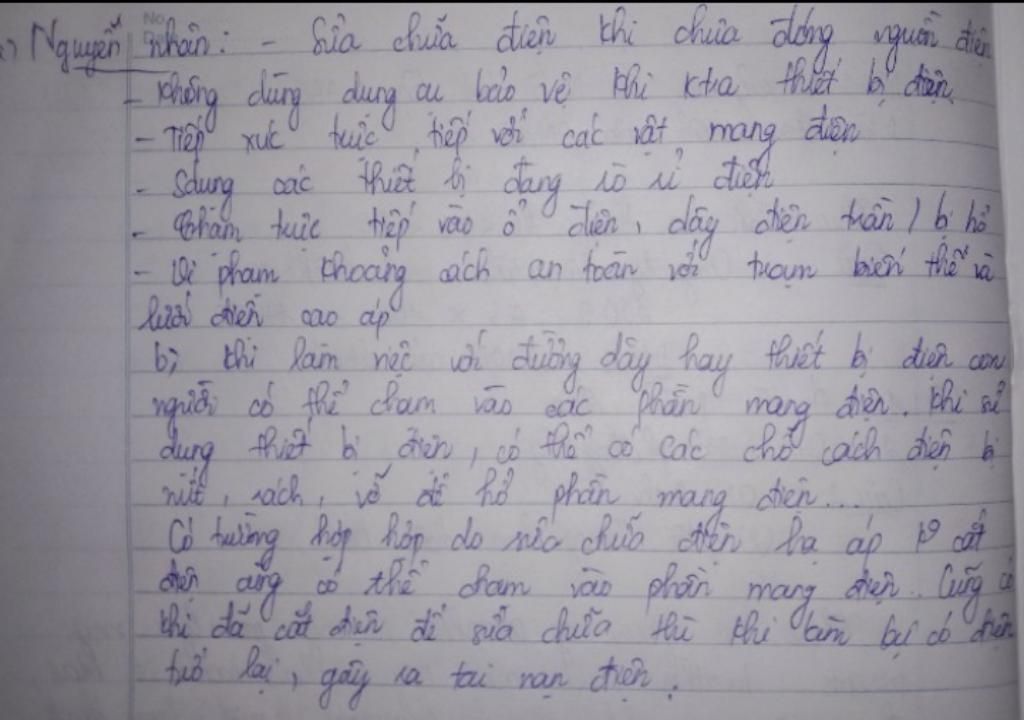 Nguyễn nhân: - Sửa chữa điện khi chưa đóng nguồn điện
- Không dùng dụng cụ bảo vệ khi ktra thiết bị điện
- Tiếp xúc trực tiếp với các vật mang điện
- Sdụng các thiết bị đang rò rỉ điện
- Chạm trực tiếp vào ổ điện, dây điện trần / bị hở
- Vi phạm khoảng cách an toàn với trạm biến thế và
lưới điện cao áp
b, Khi làm việc với đường dây hay thiết bị điện con
người có thể chạm vào các phần mang điện. Khi sử
dụng thiết bị điện, có thể có các chỗ cách điện bị
nứt, rách, vỡ để hở phần mang điện...
Có trường hợp hợp do sửa chữa điện hạ áp ko cắt
điện cũng có thể chạm vào phần mang điện.. Cũng có
khi đã cắt điện để sửa chữa thì khi làm bị có điện
trở lại, gây ra tai nạn điện.